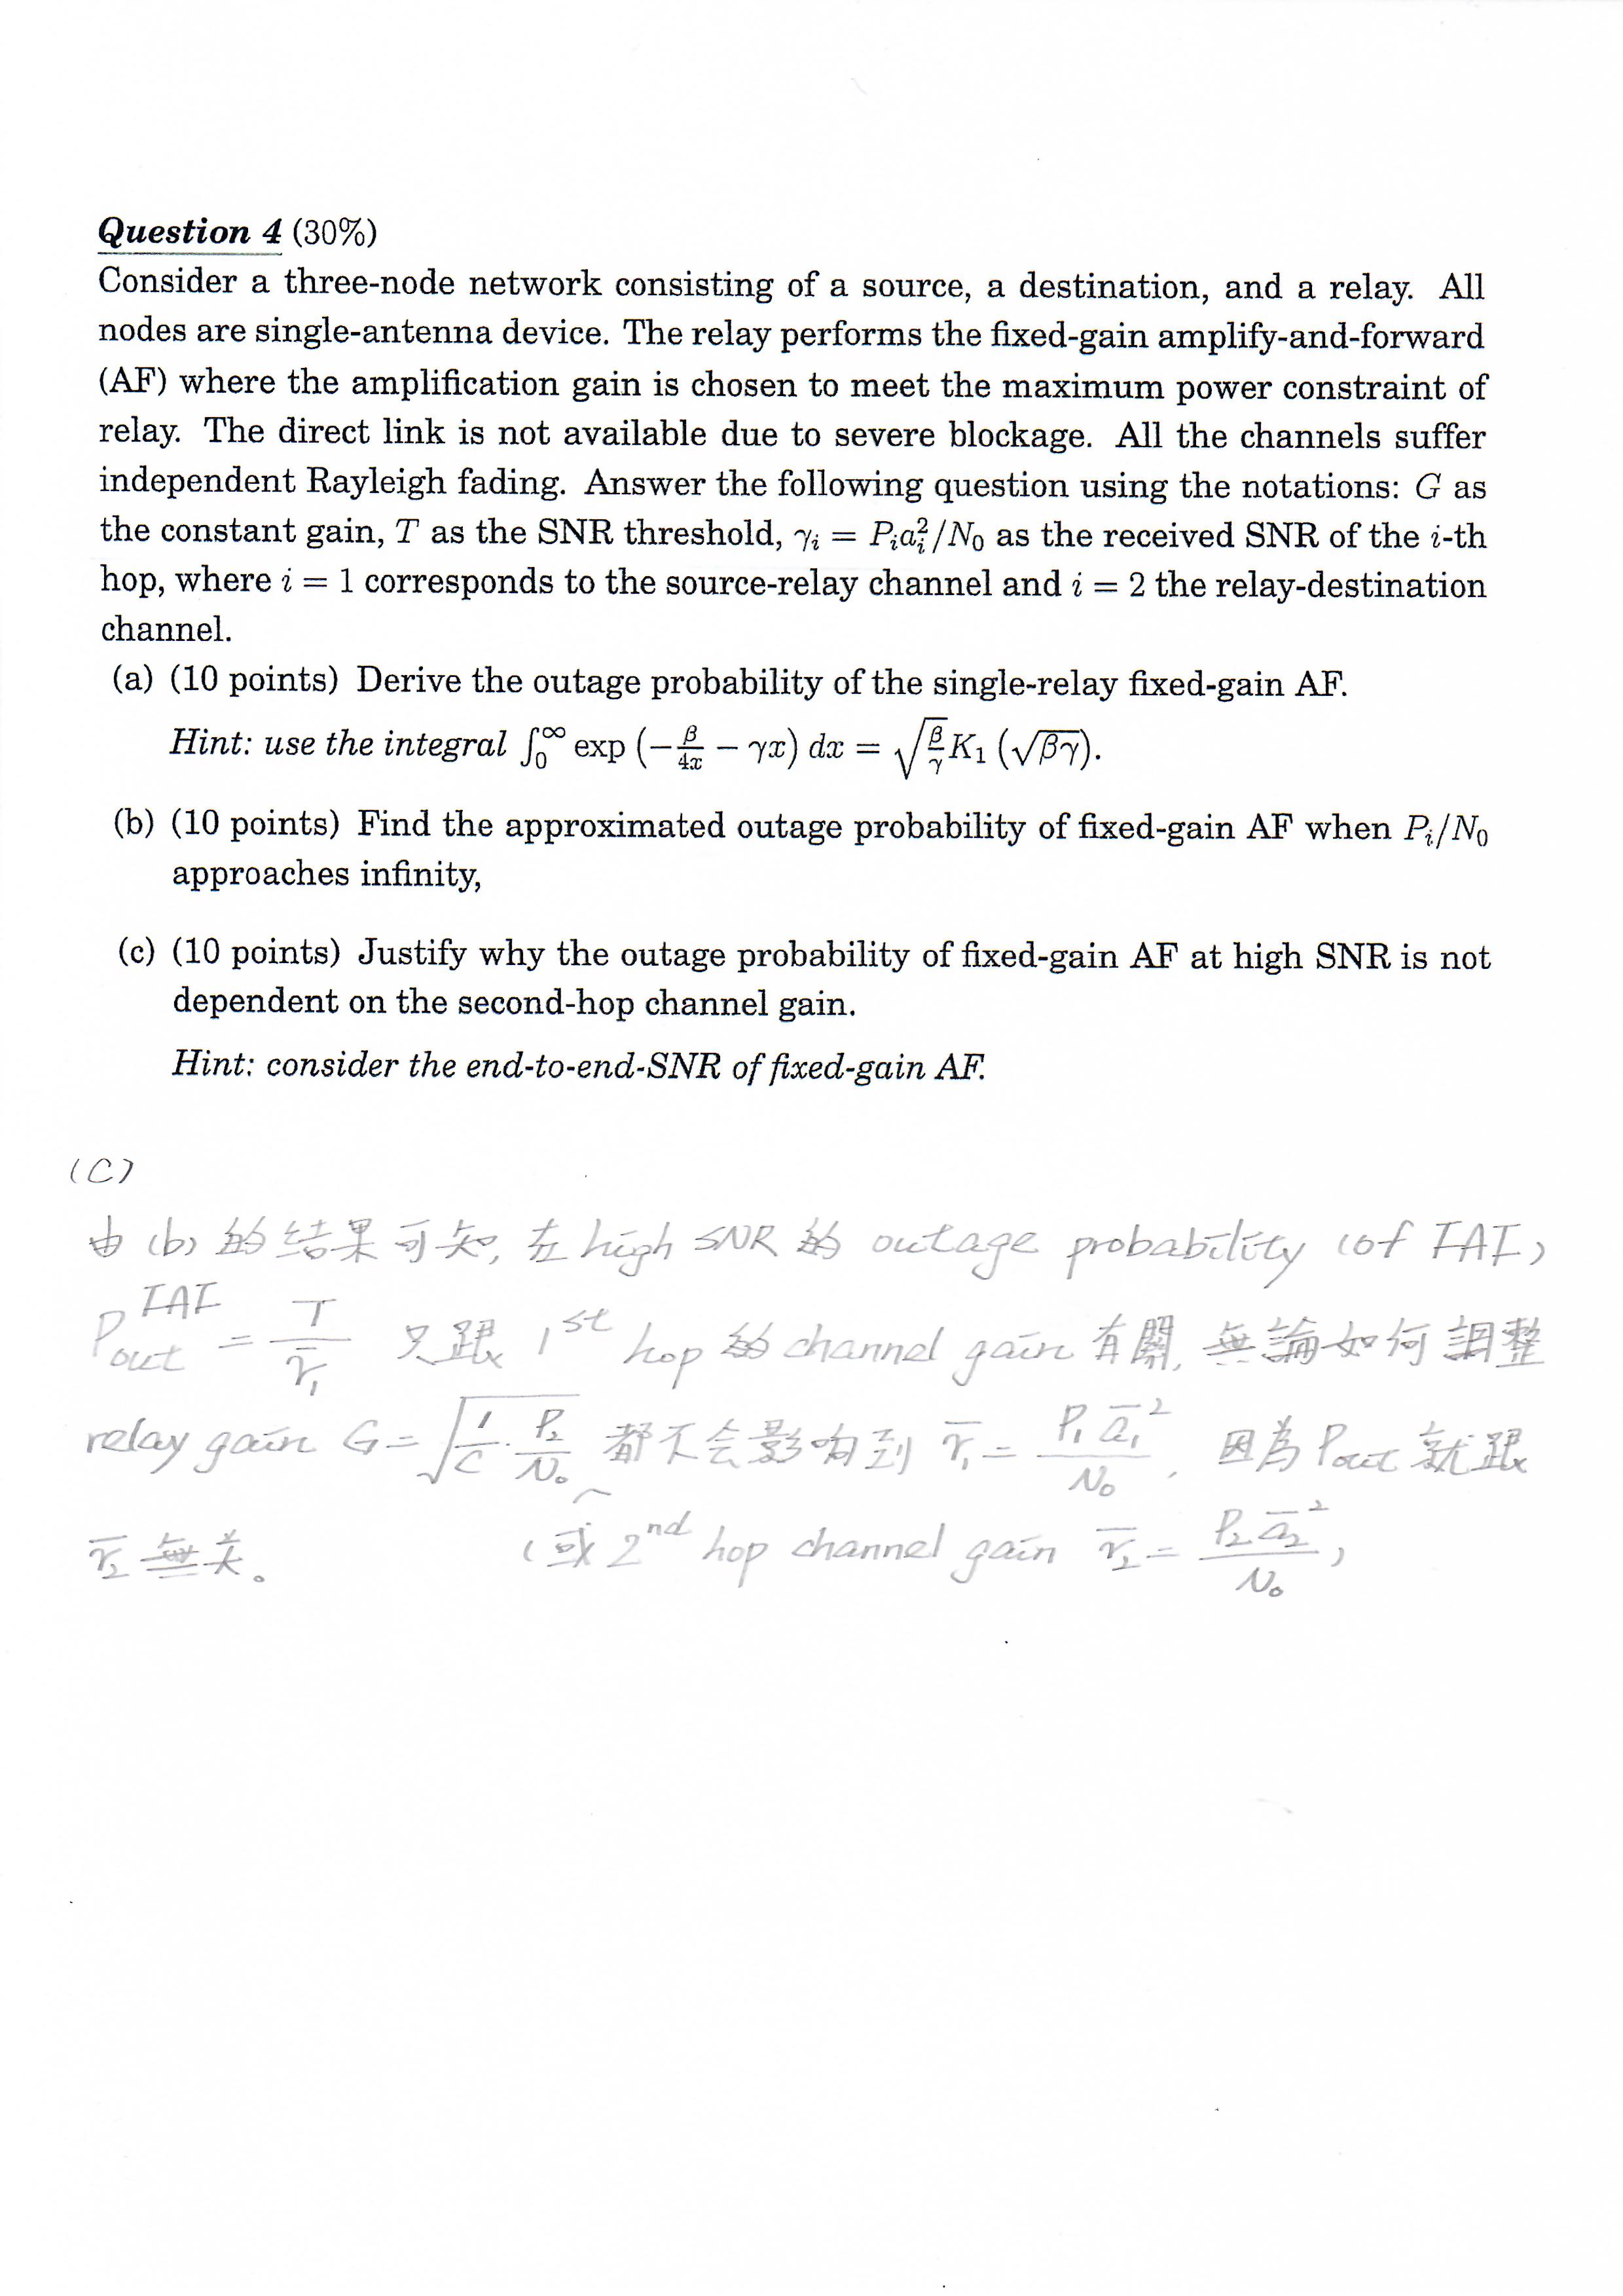 Question 4 (30%)
Consider a three-node network consisting of a source, a destination, and a relay. All
nodes are single-antenna device. The relay performs the fixed-gain amplify-and-forward
(AF) where the amplification gain is chosen to meet the maximum power constraint of
relay. The direct link is not available due to severe blockage. All the channels suffer
independent Rayleigh fading. Answer the following question using the notations: G as
the constant gain, T as the SNR threshold, γᵢ = Pᵢaᵢ²/N₀ as the received SNR of the i-th
hop, where i = 1 corresponds to the source-relay channel and i = 2 the relay-destination
channel.
(a) (10 points) Derive the outage probability of the single-relay fixed-gain AF.
Hint: use the integral ∫₀^∞ exp (−β/4x − γx) dx = √(β/γ) K₁ (√βγ).
(b) (10 points) Find the approximated outage probability of fixed-gain AF when Pᵢ/N₀
approaches infinity,
(c) (10 points) Justify why the outage probability of fixed-gain AF at high SNR is not
dependent on the second-hop channel gain.
Hint: consider the end-to-end-SNR of fixed-gain AF.
(C)
由 (b) 的结果可知, 在 high SNR 的 outage probability (of FAF)
P_out^FAF = T/γ̄₁ 只跟 1st hop 的 channel gain 有關, 無論如何調整
relay gain G = √(1/C · P₂/N₀) 都不会影响到 γ̄₁ = P₁ā₁²/N₀, 因為 Pout 就跟
γ̄₂ 無关。 (或 2nd hop channel gain γ̄₂ = P₂ā₂²/N₀)